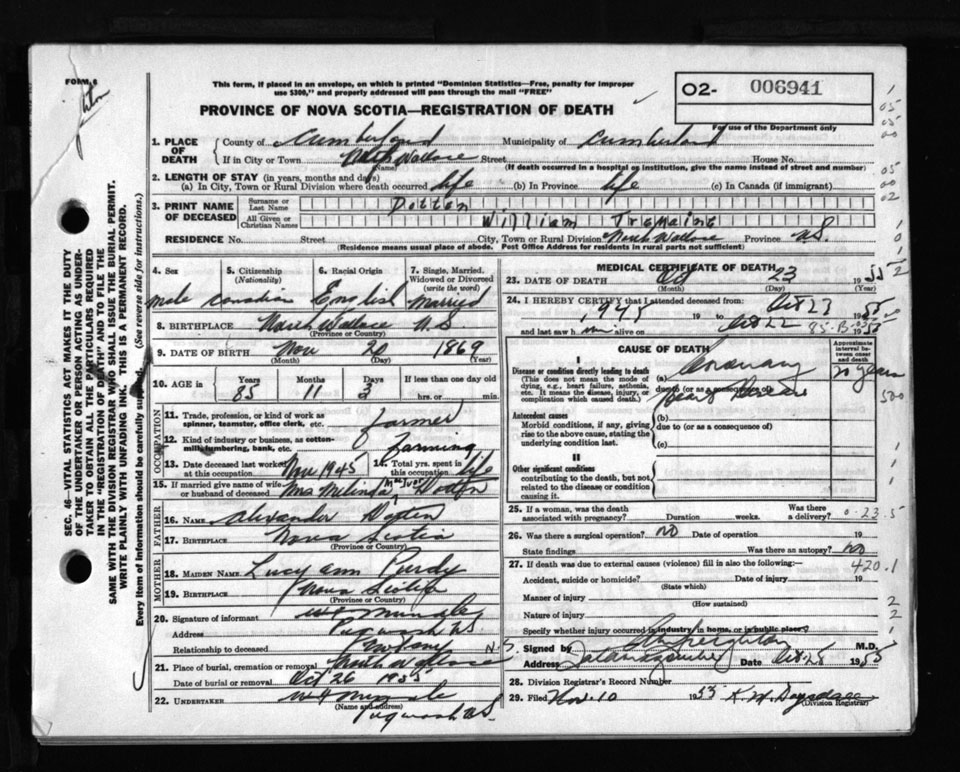 FORM 6
This form, if placed in an envelope, on which is printed "Dominion Statistics—Free, penalty for improper
use $300," and properly addressed will pass through the mail "FREE"
PROVINCE OF NOVA SCOTIA—REGISTRATION OF DEATH
O2- 006941
For use of the Department only
SEC. 46—VITAL STATISTICS ACT MAKES IT THE DUTY
OF THE UNDERTAKER OR PERSON ACTING AS UNDER-
TAKER TO OBTAIN ALL THE PARTICULARS REQUIRED
IN THE "REGISTRATION OF DEATH" AND TO FILE THE
SAME WITH THE DIVISION REGISTRAR WHO SHALL ISSUE THE BURIAL PERMIT.
WRITE PLAINLY WITH UNFADING INK. THIS IS A PERMANENT RECORD.
Every item of information should be carefully supplied. (See reverse side for instructions.)
1. PLACE OF DEATH County of Cumberland Municipality of Cumberland
If in City or Town North Wallace Street House No.
(Name) (If death occurred in a hospital or institution, give the name instead of street and number)
2. LENGTH OF STAY (in years, months and days)
(a) In City, Town or Rural Division where death occurred life (b) In Province life (c) In Canada (if immigrant)
3. PRINT NAME OF DECEASED Surname or Last Name Dotten
All Given or Christian Names William Tremaine
RESIDENCE No. Street City, Town or Rural Division North Wallace Province N.S.
(Residence means usual place of abode. Post Office Address for residents in rural parts not sufficient)
4. Sex 5. Citizenship (Nationality) 6. Racial Origin 7. Single, Married, Widowed or Divorced (write the word)
male Canadian English Married
8. BIRTHPLACE North Wallace N.S.
9. DATE OF BIRTH Nov 20 1869
(Month) (Day) (Year)
10. AGE in Years Months Days If less than one day old
85 11 3 hrs. or min.
OCCUPATION
11. Trade, profession, or kind of work as spinner, teamster, office clerk, etc. farmer
12. Kind of industry or business, as cotton-milling, lumbering, bank, etc. farming
13. Date deceased last worked at this occupation Nov 1945 14. Total yrs. spent in this occupation life
15. If married give name of wife or husband of deceased Mrs Melinda Dotten
FATHER
16. NAME Alexander Dotten
17. BIRTHPLACE Nova Scotia
(Province or Country)
MOTHER
18. MAIDEN NAME Lucy Ann Purdy
19. BIRTHPLACE Nova Scotia
(Province or Country)
20. Signature of informant
Address Pugwash N.S.
Relationship to deceased
21. Place of burial, cremation or removal North Wallace N.S.
Date of burial or removal Oct 26 1955
22. UNDERTAKER
(Name and address)
Pugwash N.S.
MEDICAL CERTIFICATE OF DEATH
23. DATE OF DEATH Oct 23 1955
(Month) (Day)
24. I HEREBY CERTIFY that I attended deceased from:
1945 19 to Oct 23 1955
and last saw him alive on Oct 22 1955
CAUSE OF DEATH
Approximate interval between onset and death
I
Disease or condition directly leading to death (a) Coronary 20 years
(This does not mean the mode of dying, e.g., heart failure, asthenia, etc. It means the disease, injury, or complication which caused death.)
due to (or as a consequence of) Heart Disease
Antecedent causes
Morbid conditions, if any, giving rise to the above cause, stating the underlying condition last.
(b)
due to (or as a consequence of)
(c)
II
Other significant conditions
contributing to the death, but not related to the disease or condition causing it.
25. If a woman, was the death associated with pregnancy? Duration weeks. Was there a delivery?
26. Was there a surgical operation? NO Date of operation 19
State findings Was there an autopsy? NO
27. If death was due to external causes (violence) fill in also the following:— 420.1
Accident, suicide or homicide? Date of injury 19
(State which)
Manner of injury
(How sustained)
Nature of injury
Specify whether injury occurred in industry, in home, or in public place?
Signed by M.D.
Address Tatamagouche Date Oct 25 1955
28. Division Registrar's Record Number
29. Filed Nov. 10 1955
(Division Registrar)